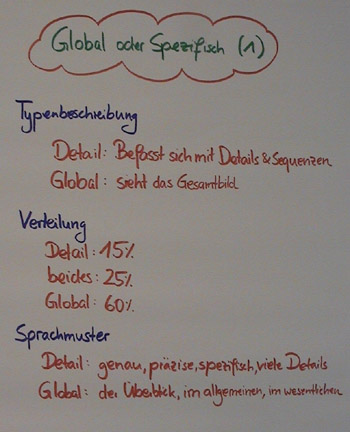 Global oder Spezifisch (1)
Typenbeschreibung
Detail: Befasst sich mit Details & Sequenzen
Global: sieht das Gesamtbild
Verteilung
Detail: 15%
beides: 25%
Global: 60%
Sprachmuster
Detail: genau, präzise, spezifisch, viele Details
Global: der Überblick, im allgemeinen, im wesentlichen